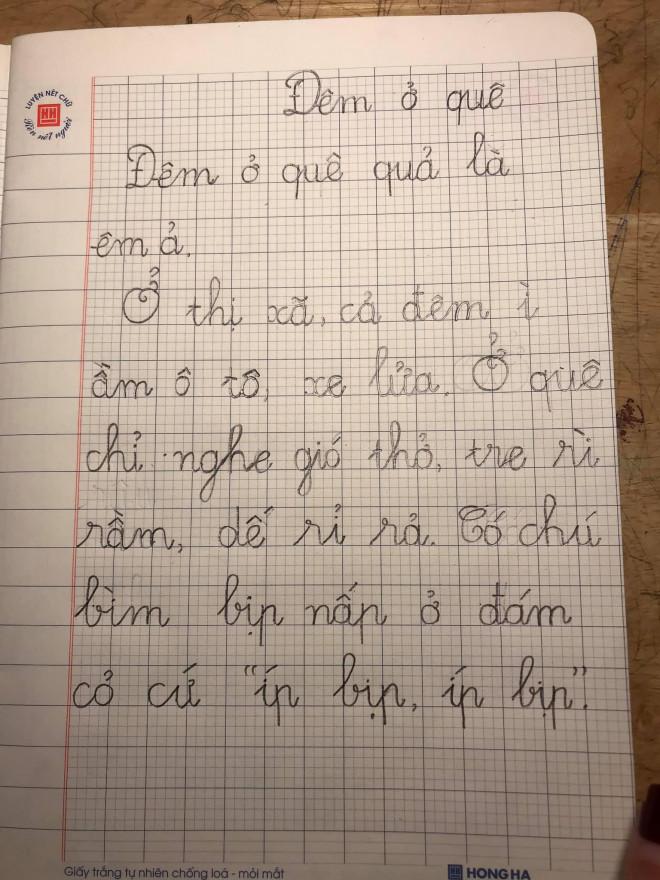 LUYỆN NÉT CHỮ
HH
Rèn nết người
Đêm ở quê
Đêm ở quê quả là
êm ả.
Ở thị xã, cả đêm ì
ầm ô tô, xe lửa. Ở quê
chỉ nghe gió thở, tre rì
rầm, dế rỉ rả. Có chú
bìm bịp nấp ở đám
cỏ cứ "íp bịp, íp bịp".
Giấy trắng tự nhiên chống loá - mỏi mắt
HONG HA